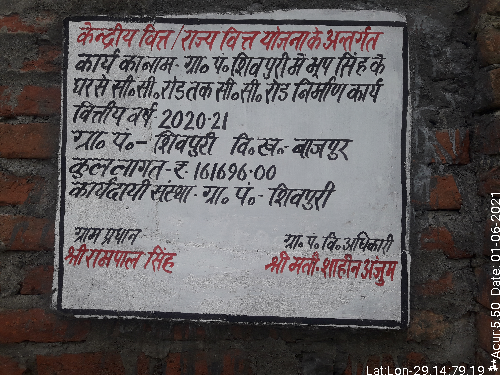 केन्द्रीय वित्त / राज्य वित्त योजना के अन्तर्गत
कार्य का नाम - ग्रा० पं० शिवपुरी में भूप सिंह के
घर से सी. सी. रोड तक सी. सी. रोड निर्माण कार्य
वित्तीय वर्ष 2020-21
ग्रा० पं० - शिवपुरी वि. ख. - बाजपुर
कुल लागत - रु. 161696.00
कार्यदायी संस्था - ग्रा० पं० - शिवपुरी
ग्राम प्रधान
श्री रामपाल सिंह
ग्रा० पं० वि. अधिकारी
श्री मती. शाहीन अंजुम
Lat:Lon-29.14:79.19
**Acur:5.50 Date: 01-06-2021